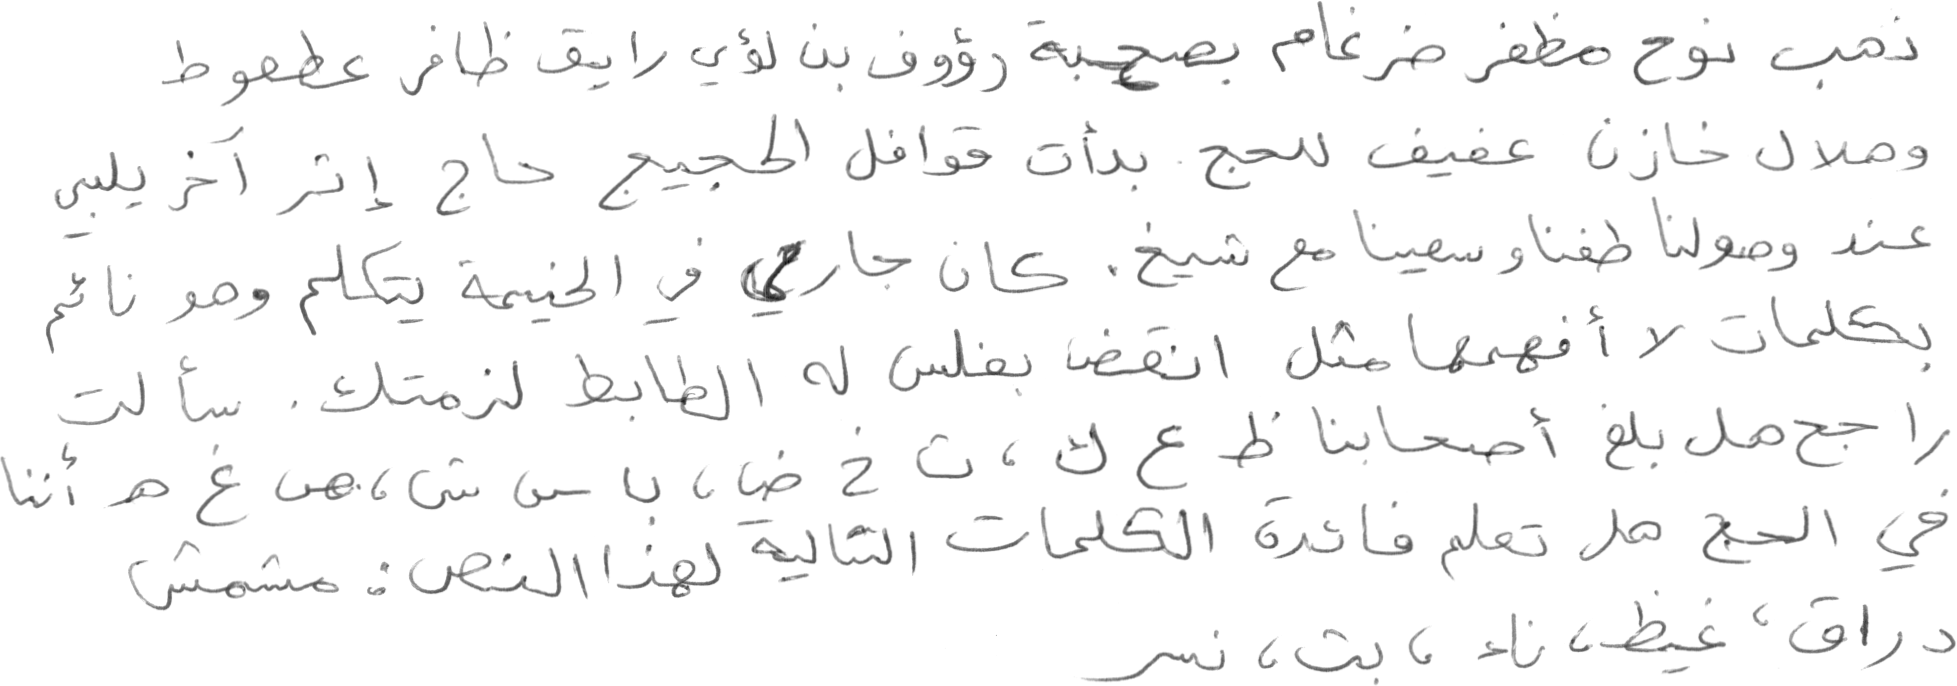 ذهب نوح مظفر ضرغام بصحبة رؤوف بن لؤي رايق ظافر عطعوط
وهلال خازن عفيف للحج. بدأت قوافل الحجيج حاج إثر آخر يلبي
عند وصولنا طفنا وسعينا مع شيخ. كان جاري في الخيمة يتكلم وهو نائم
بكلمات لا أفهمها مثل انقض بفلس له الطابط لزمتك. سألت
راجح هل بلغ أصحابنا ظ ع ك، ث خ ض، ب س ش، ص غ ه أننا
في الحج هل تعلم فائدة الكلمات التالية لهذا النص: مشمش
دراق، غيظ، ناء، بت، نسر